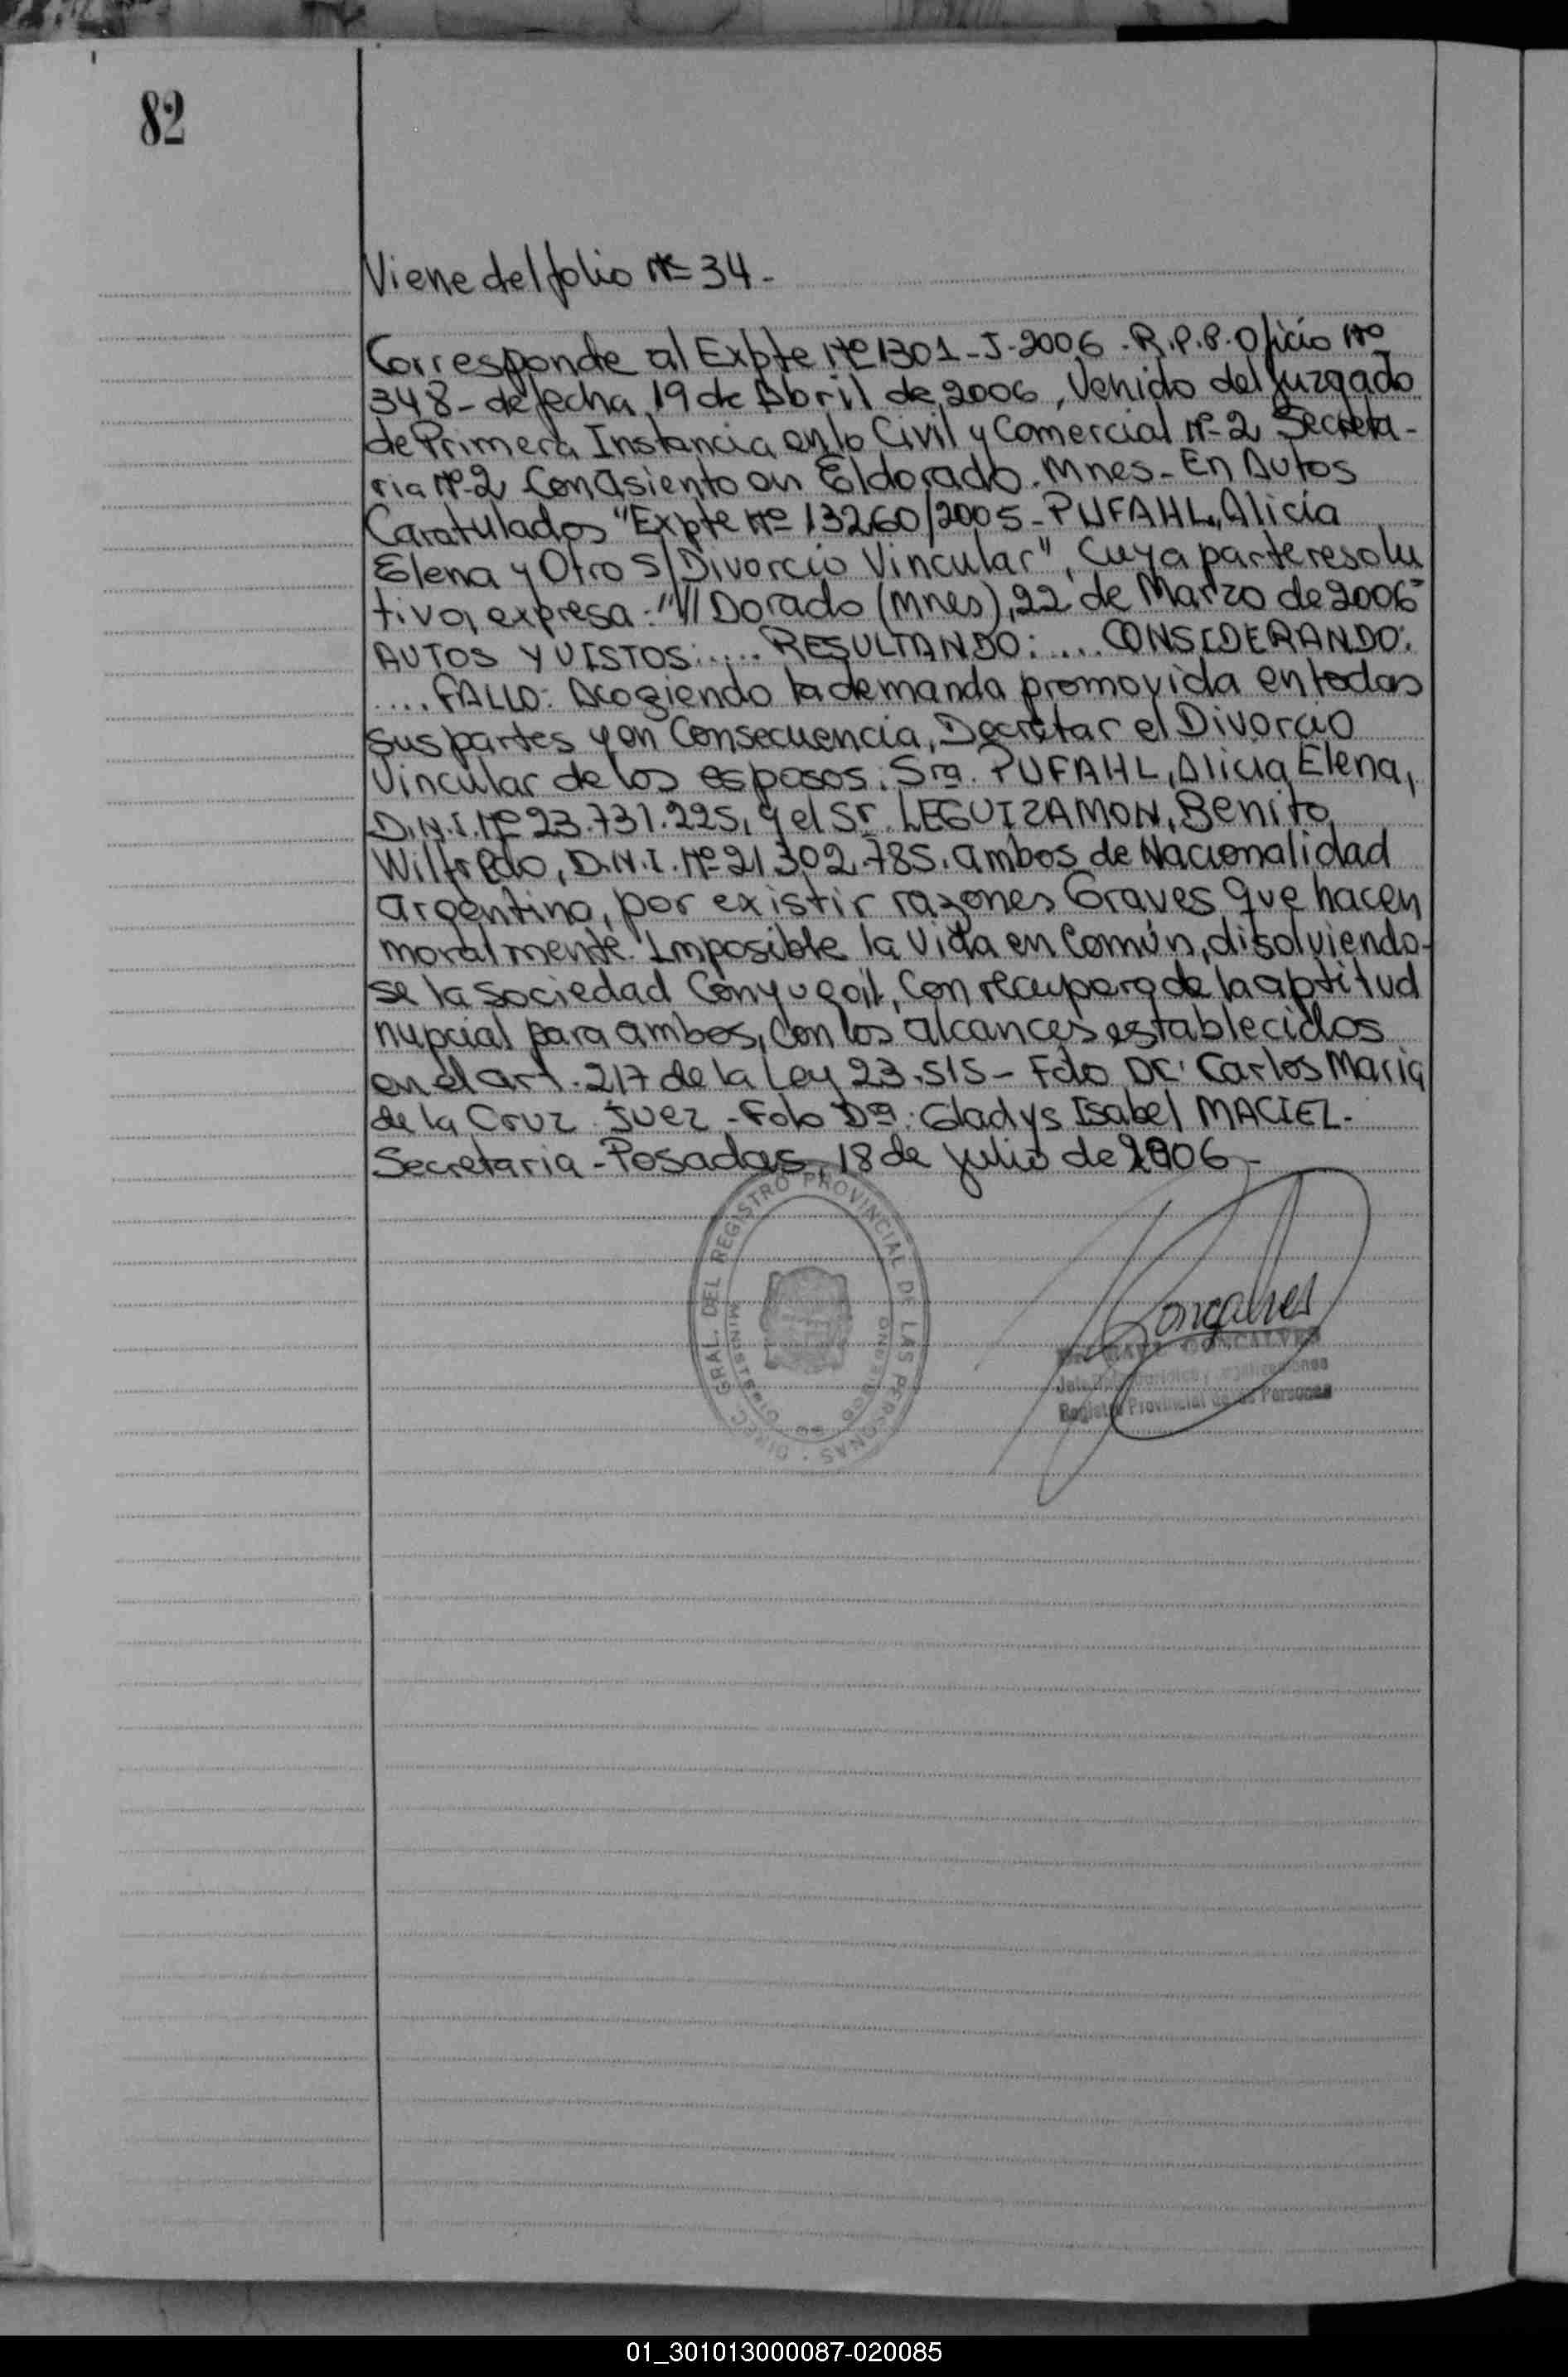 82
Viene del folio Nº 34-
Corresponde al Expte Nº 1301-J-2006-R.P.P. Oficio Nº
348- de fecha 19 de Abril de 2006, Venido del Juzgado
de Primera Instancia en lo Civil y Comercial Nº-2 Secreta-
ria Nº-2 Con Asiento en Eldorado. Mnes- En Autos
Caratulados "Expte Nº 13260/2005-PUFAHL, Alicia
Elena y Otro S/Divorcio Vincular", Cuya parte resolu
tiva, expresa: "// Dorado (Mnes), 22 de Marzo de 2006"
AUTOS Y VISTOS:.... RESULTANDO:.... CONSIDERANDO:
.... FALLO: Acogiendo la demanda promovida en todas
sus partes y en Consecuencia, Decretar el Divorcio
Vincular de los esposos: Sra. PUFAHL, Alicia Elena,
D.N.I. Nº 23.731.225, y el Sr. LEGUIZAMON, Benito
Wilfredo, D.N.I. Nº 21.302.785. ambos de Nacionalidad
argentino, por existir razones Graves que hacen
moralmente Imposible la Vida en Común, disolviendo-
se la sociedad Conyugal, Con recupero de la aptitud
nupcial para ambos, Con los alcances establecidos
en el art. 217 de la Ley 23.515- Fdo Dr. Carlos Maria
de la Cruz. Juez -Fdo Dª. Gladys Isabel MACIEL-
Secretaria-Posadas, 18 de Julio de 2006-
DIREC. GRAL. DEL REGISTRO PROVINCIAL DE LAS PERSONAS
MINISTERIO DE GOBIERNO
Gonçalves
GONCALVES
Registro Provincial de las Personas
01_301013000087-020085